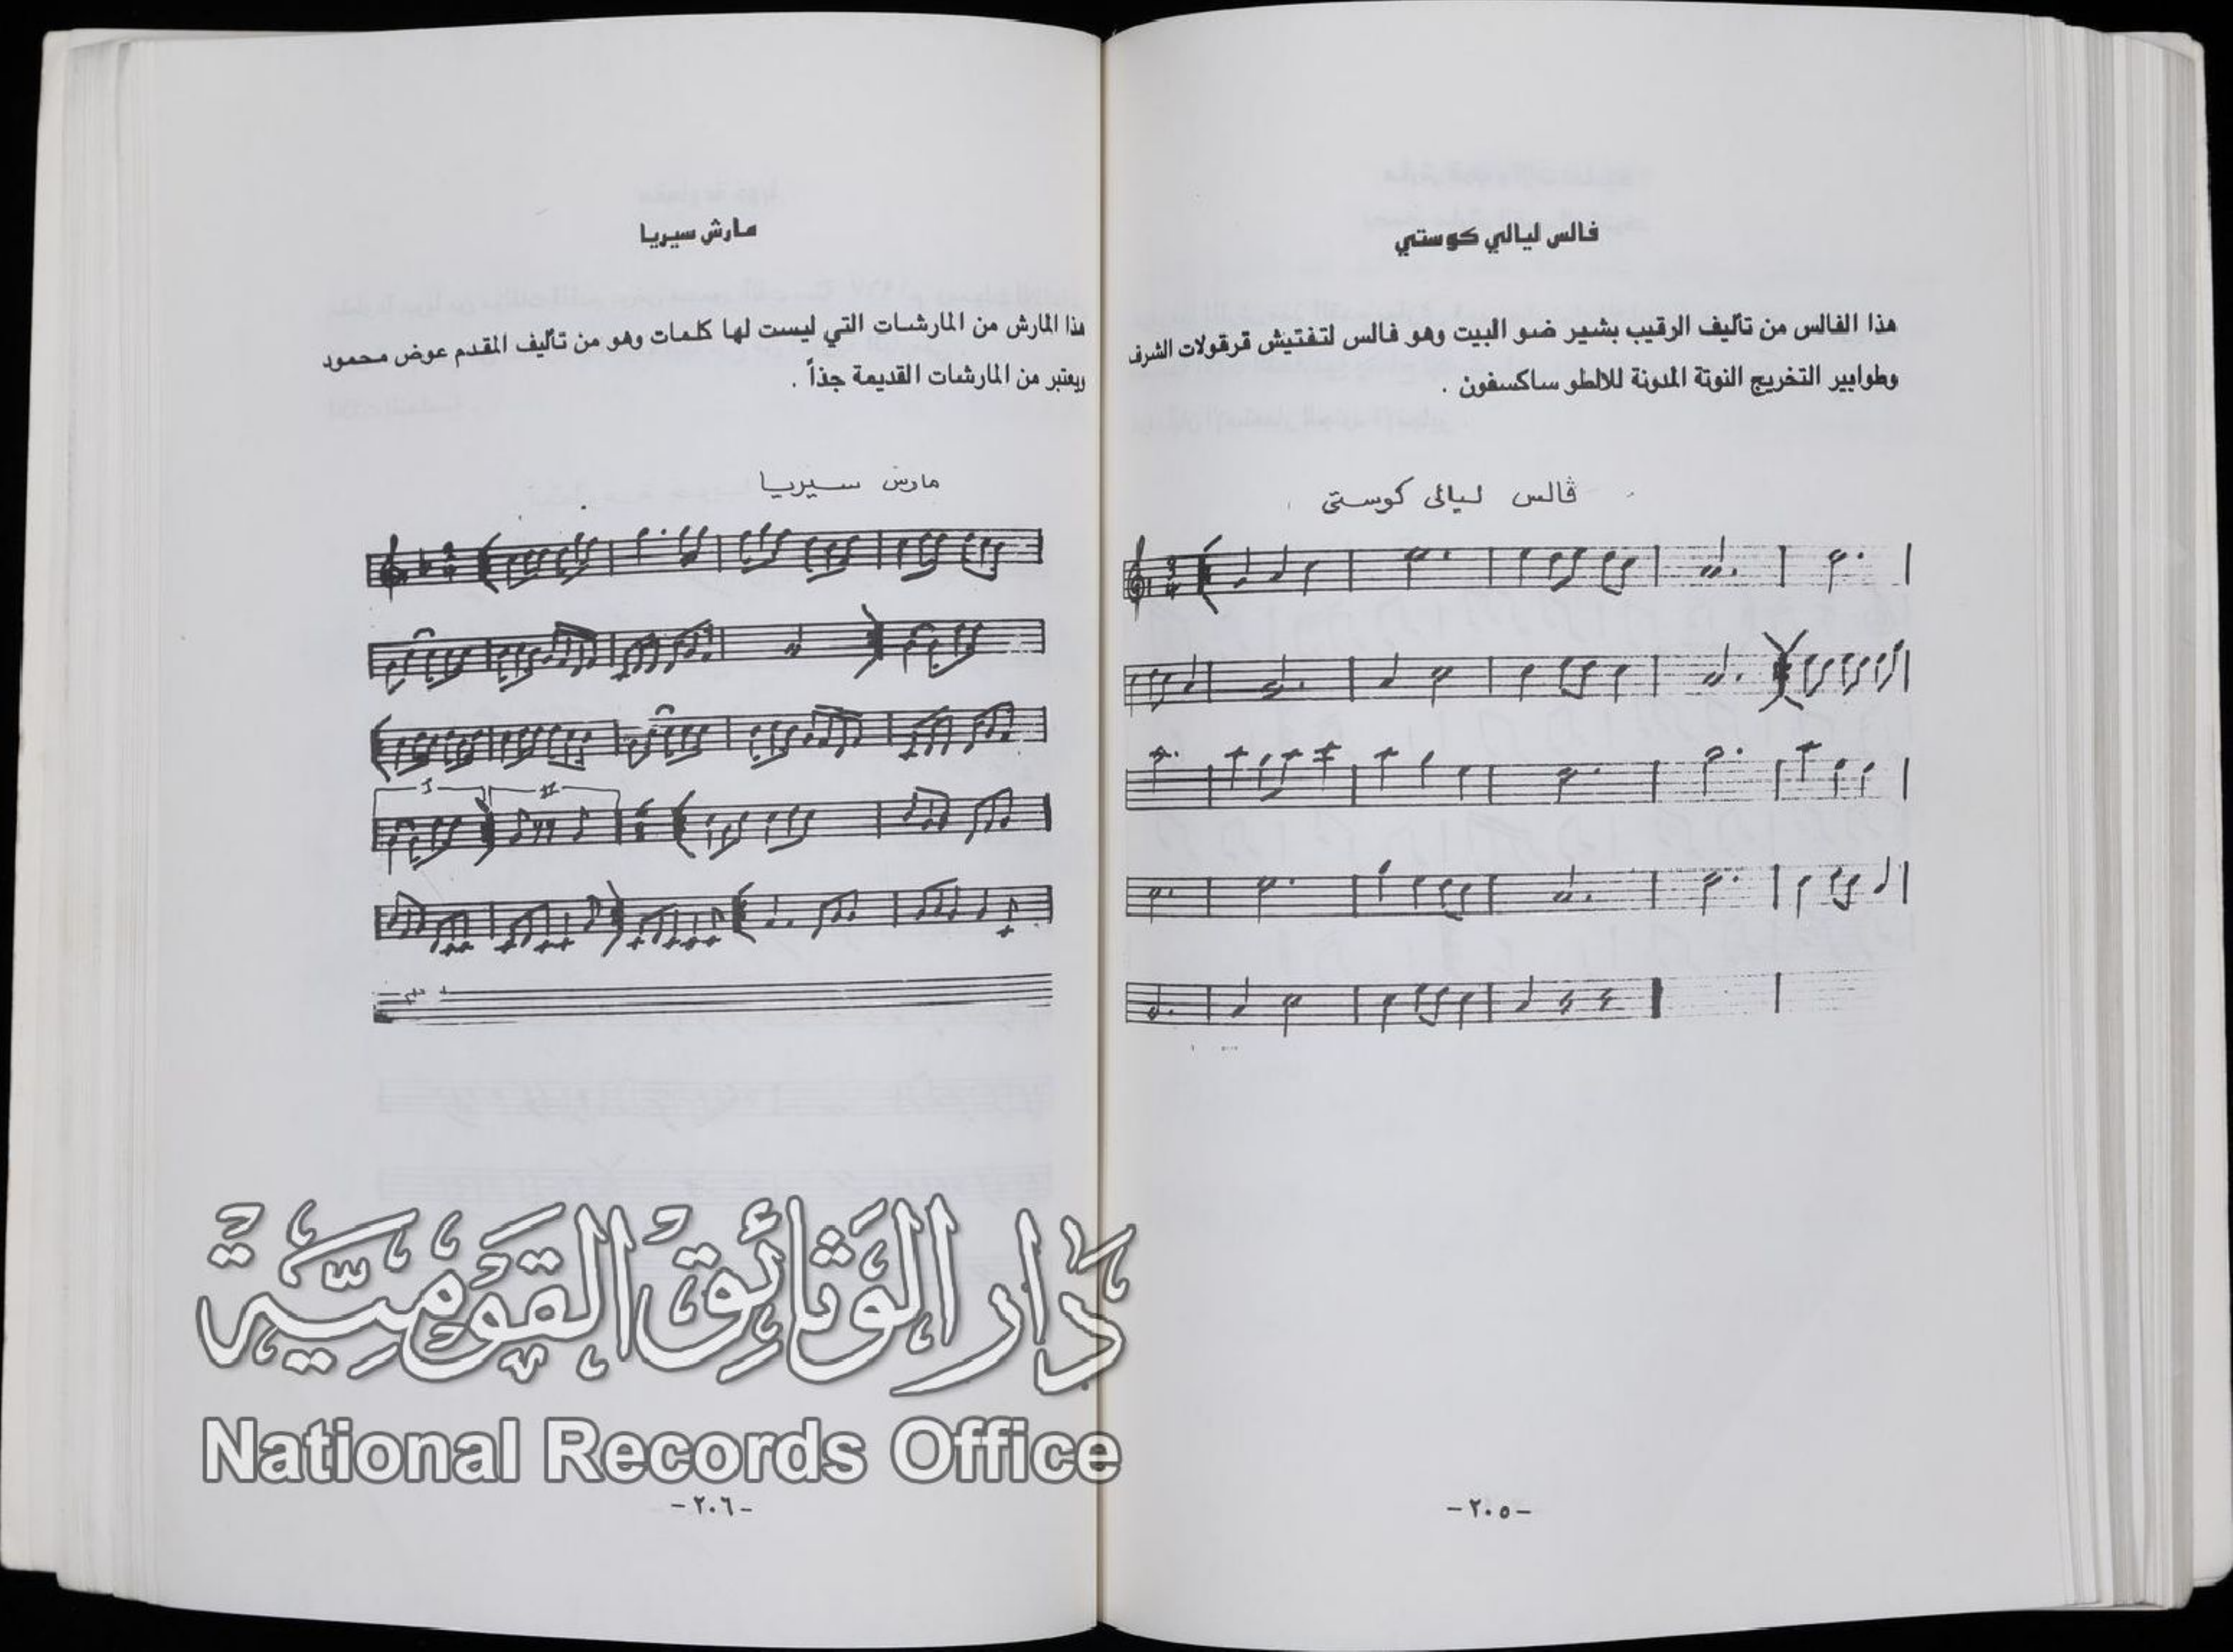 فالس ليالي كوستي
هذا الفالس من تأليف الرقيب بشير ضو البيت وهو فالس لتفتيش قرقولات الشرف
وطوابير التخريج النوتة المدونة للالطو ساكسفون .
ڤالس ليالى كوستى
-٢٠٥-
مارش سيريا
هذا المارش من المارشات التي ليست لها كلمات وهو من تأليف المقدم عوض محمود
ويعتبر من المارشات القديمة جذاً .
مارش سيريا
I
II
دَار الوَثائِق القَوْمِيَّة
National Records Office
-٢٠٦-